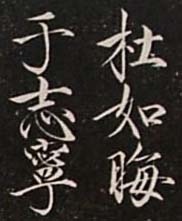 杜如晦
于志寧